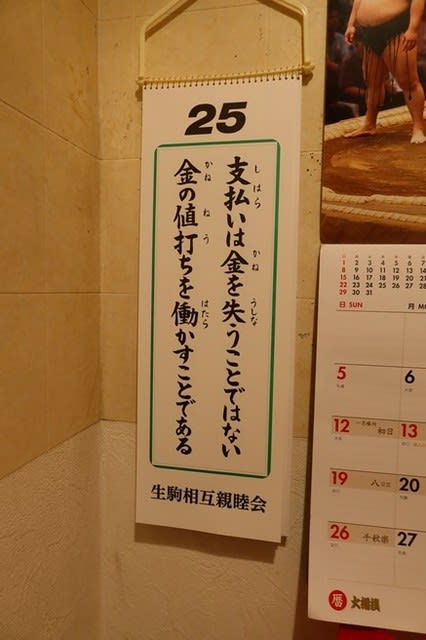 25
支払いは金を失うことではない
しはら かね うしな
金の値打ちを働かすことである
かね ねう はたら
生駒相互親睦会
1 2 3 4 5 6 7
8 9 10 11 12 13 14
15 16 17 18 19 20 21
22 23 24 25 26 27 28
29 30 31
日 SUN 月 MO
5 6
12 初日 13
19 20
26 千秋楽 27
暦 大相撲